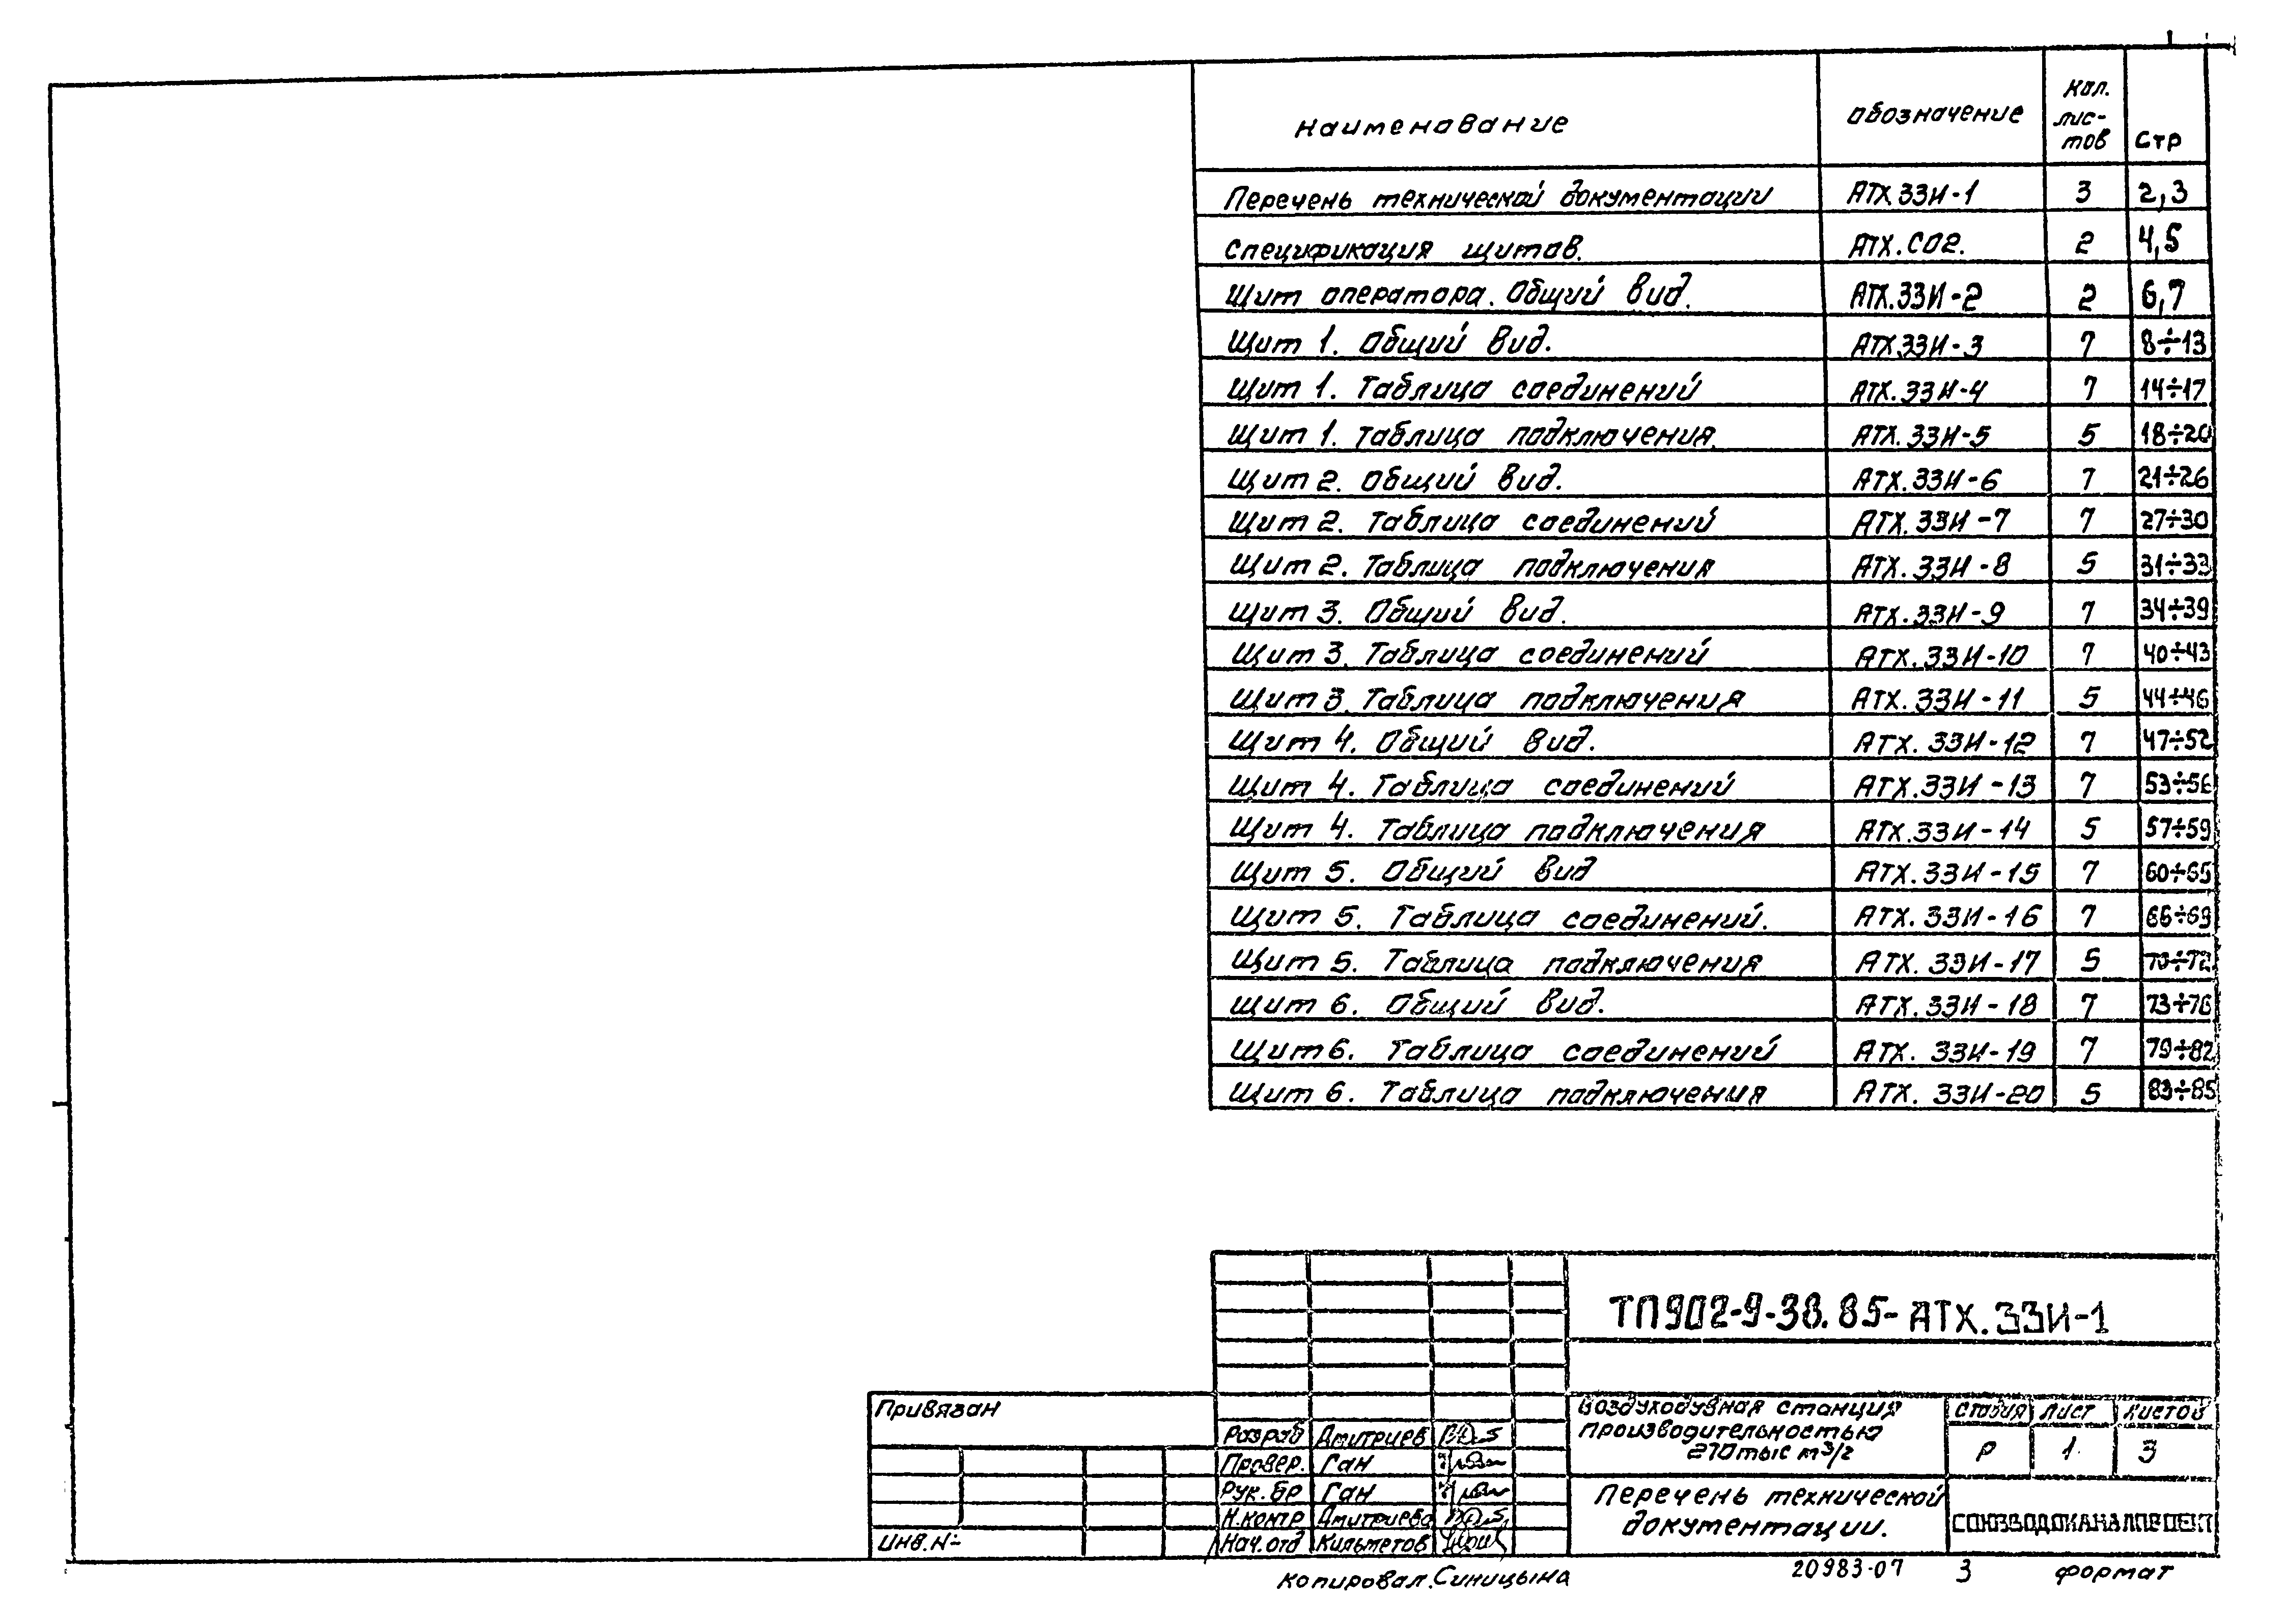 Наименование Обозначение Кол. лис- тов Стр
Перечень технической документации АТХ.ЗЗИ-1 3 2,3
Спецификация щитов. АТХ.СО2. 2 4,5
Щит оператора. Общий вид. АТХ.ЗЗИ-2 2 6,7
Щит 1. Общий вид. АТХ.ЗЗИ-3 7 8÷13
Щит 1. Таблица соединений АТХ.ЗЗИ-4 7 14÷17
Щит 1. Таблица подключения. АТХ.ЗЗИ-5 5 18÷20
Щит 2. Общий вид. АТХ.ЗЗИ-6 7 21÷26
Щит 2. Таблица соединений АТХ.ЗЗИ-7 7 27÷30
Щит 2. Таблица подключения АТХ.ЗЗИ-8 5 31÷33
Щит 3. Общий вид. АТХ.ЗЗИ-9 7 34÷39
Щит 3. Таблица соединений АТХ.ЗЗИ-10 7 40÷43
Щит 3. Таблица подключения АТХ.ЗЗИ-11 5 44÷46
Щит 4. Общий вид. АТХ.ЗЗИ-12 7 47÷52
Щит 4. Таблица соединений АТХ.ЗЗИ-13 7 53÷56
Щит 4. Таблица подключения АТХ.ЗЗИ-14 5 57÷59
Щит 5. Общий вид АТХ.ЗЗИ-15 7 60÷65
Щит 5. Таблица соединений. АТХ.ЗЗИ-16 7 66÷69
Щит 5. Таблица подключения АТХ.ЗЗИ-17 5 70÷72
Щит 6. Общий вид. АТХ.ЗЗИ-18 7 73÷78
Щит 6. Таблица соединений АТХ.ЗЗИ-19 7 79÷82
Щит 6. Таблица подключения АТХ.ЗЗИ-20 5 83÷85
ТП902-9-38.85-АТХ.ЗЗИ-1
Привязан
Инв.№
Разраб Дмитриев
Провер. Ган
Рук.бр Ган
Н.контр Дмитриева
Нач.отд Кильметов
Воздуходувная станция
производительностью
270тыс м³/г
Стадия Лист Листов
Р 1 3
Перечень технической
документации.
СОЮЗВОДОКАНАЛПРОЕКТ
Копировал. Синицына 20983-07 3 формат